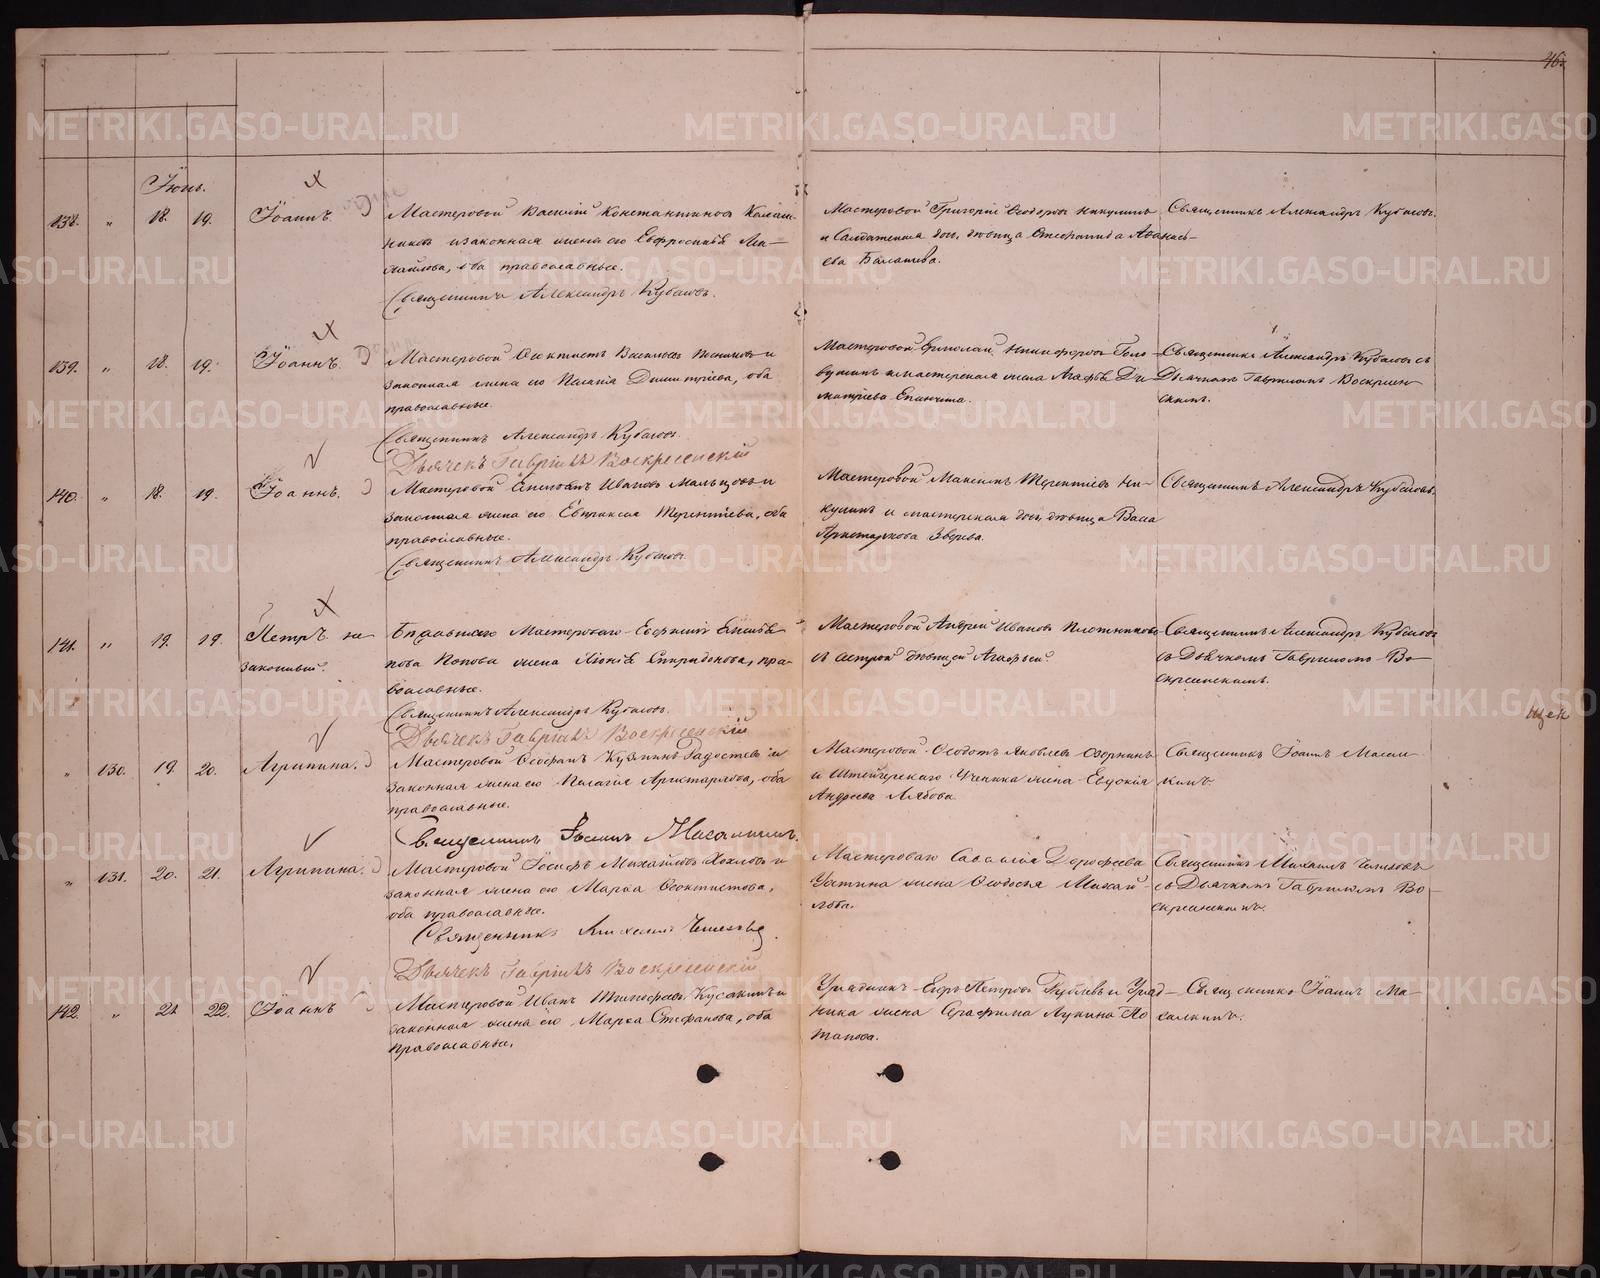 46.
Іюнь.
138. " 18. 19. Іоаннъ. Мастеровой Василій Константиновъ
и законная жена его Евфросинія Ми-
хайлова, оба православные.
Священникъ Александръ Кубасовъ.
Мастеровой Григорій Ѳеодоровъ Никулинъ
и Солдатская дочь, дѣвица Стефанида Аѳанась-
ева Балашева.
Священникъ Александръ Кубасовъ.
139. " 18. 19. Іоаннъ. Мастеровой Ѳеоктистъ Васильевъ и
законная жена его Пелагія Димитріева, оба
православные.
Священникъ Александръ Кубасовъ.
Дьячекъ Гавріилъ Воскресенскій
Мастеровой Ермолай Никифоровъ Голо-
вулинъ и мастерская жена Агафья Ди-
митріева Епанчина.
Священникъ Александръ Кубасовъ съ
Дьячкомъ Гавріиломъ Воскресен-
скимъ.
140. " 18. 19. Іоаннъ. Мастеровой Ивановъ Мальцовъ и
законная жена его Евпраксія Терентіева, оба
православные.
Священникъ Александръ Кубасовъ.
Мастеровой Максимъ Терентіевъ Ни-
кулинъ и мастерская дочь, дѣвица Васса
Аристархова Звѣрева.
Священникъ Александръ Кубасовъ.
141. " 19. 19. Петръ не-
законный. Мастероваго
Попова жена Спиридонова, пра-
вославные.
Священникъ Александръ Кубасовъ.
Дьячекъ Гавріилъ Воскресенскій
Мастеровой Андрей Ивановъ Плотниковъ
съ сестрой дѣвицей Агафьей.
Священникъ Александръ Кубасовъ
съ Дьячкомъ Гавріиломъ Во-
скресенскимъ.
" 130. 19. 20. Агрипина. Мастеровой Ѳеофанъ Кузминъ и
законная жена его Пелагія Аристархова, оба
православные.
Священникъ Іоаннъ Масалкинъ.
Мастеровой Ѳеодотъ Яковлевъ Озорнинъ
и Штейгерскаго Ученика жена Евдокія
Андреева Лябова.
Священникъ Іоаннъ Масал-
кинъ.
" 131. 20. 21. Агрипина. Мастеровой Іосифъ Михайловъ Хохловъ и
законная жена его Марѳа Ѳеоктистова,
оба православные.
Священникъ Михаилъ
Дьячекъ Гавріилъ Воскресенскій
Мастероваго Савватія Дорофеева
Устина жена Ѳеодосія Михай-
лова.
Священникъ Михаилъ
съ Дьячкомъ Гавріиломъ Во-
скресенскимъ.
142. " 21. 22. Іоаннъ Мастеровой Иванъ Тимофеевъ Кусакинъ и
законная жена его Марѳа Стефанова, оба
православные.
Урядникъ Егоръ Петровъ и Уряд-
ника жена Серафима Лукина По-
тапова.
Священникъ Іоаннъ Ма-
салкинъ.
METRIKI.GASO-URAL.RU